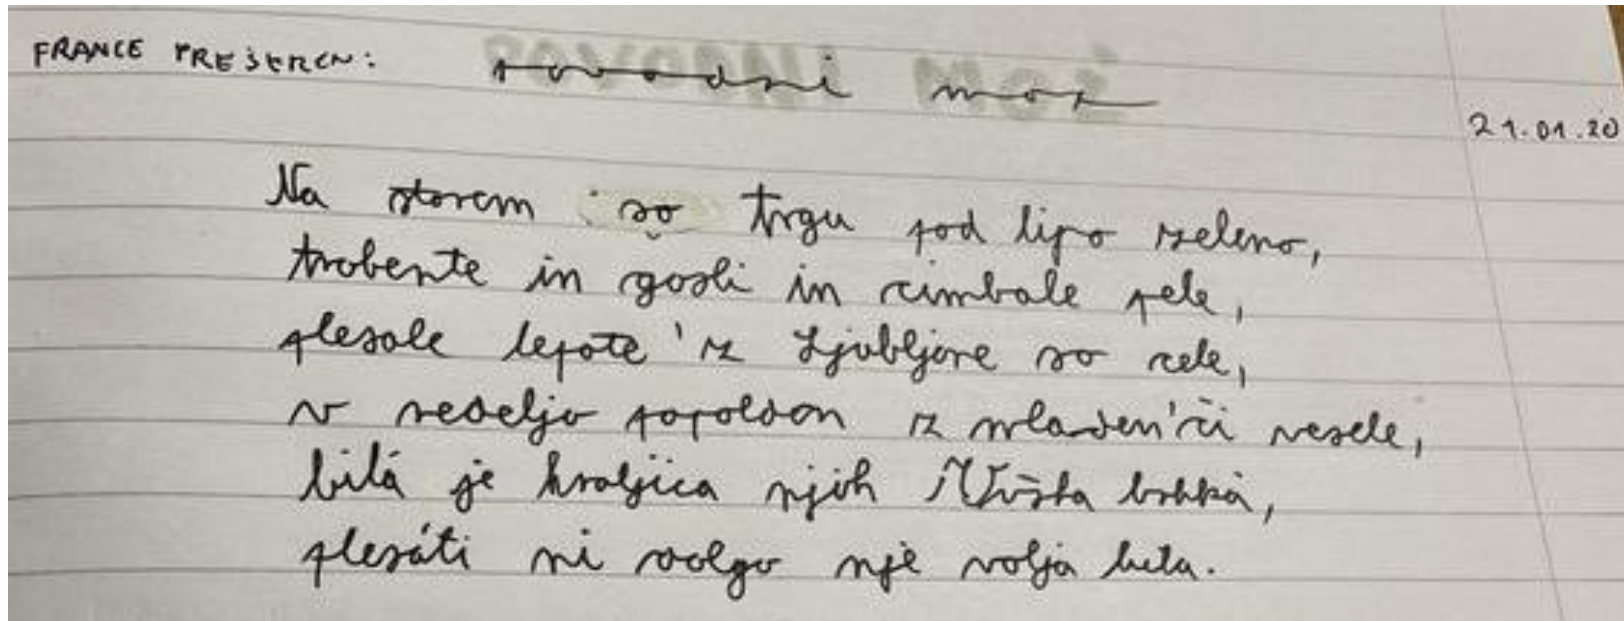 FRANCE PREŠEREN: povodni mož
21.01.20
Na starem so trgu pod lipo zeleno,
trobente in gosli in cimbale pele,
plesale lepote 'z Ljubljane so cele,
v nedeljo popoldan z mladen'či vesele,
bilá je kraljica njih Urška brhkà,
plesáti ni dolgo nje volja bila.